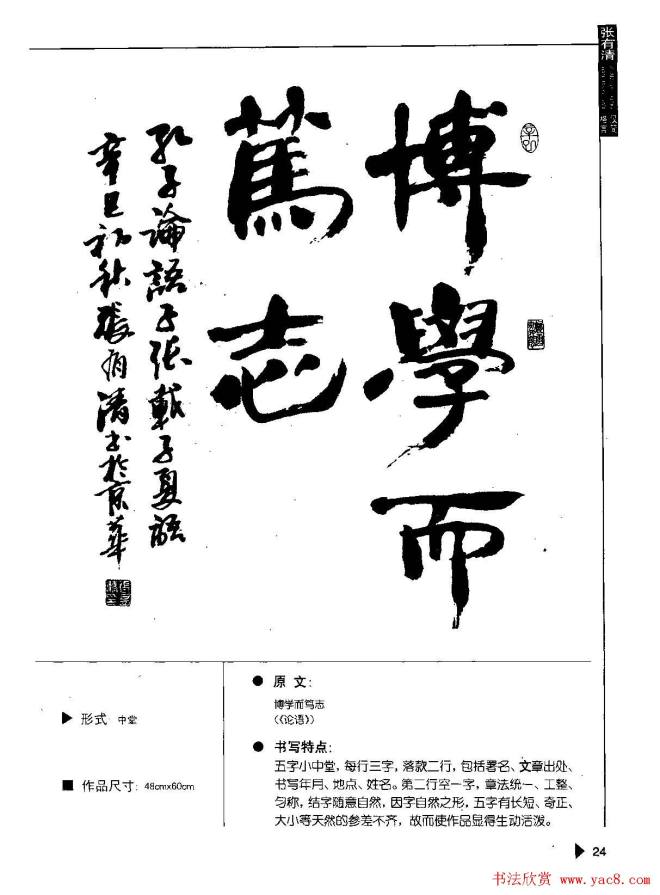 張有清
汉简
格言
博學而
篤志
孔子論語子張載子夏語
辛巳初秋張有清书於京華
▶ 形式 中堂
■ 作品尺寸: 48cmx60cm
● 原 文:
博学而笃志
(《论语》)
● 书写特点:
五字小中堂,每行三字,落款二行,包括署名、文章出处、
书写年月、地点、姓名。第二行空一字,章法统一、工整、
匀称,结字随意自然,因字自然之形,五字有长短、奇正、
大小等天然的参差不齐,故而使作品显得生动活泼。
▶ 24
书法欣赏 www.yac8.com